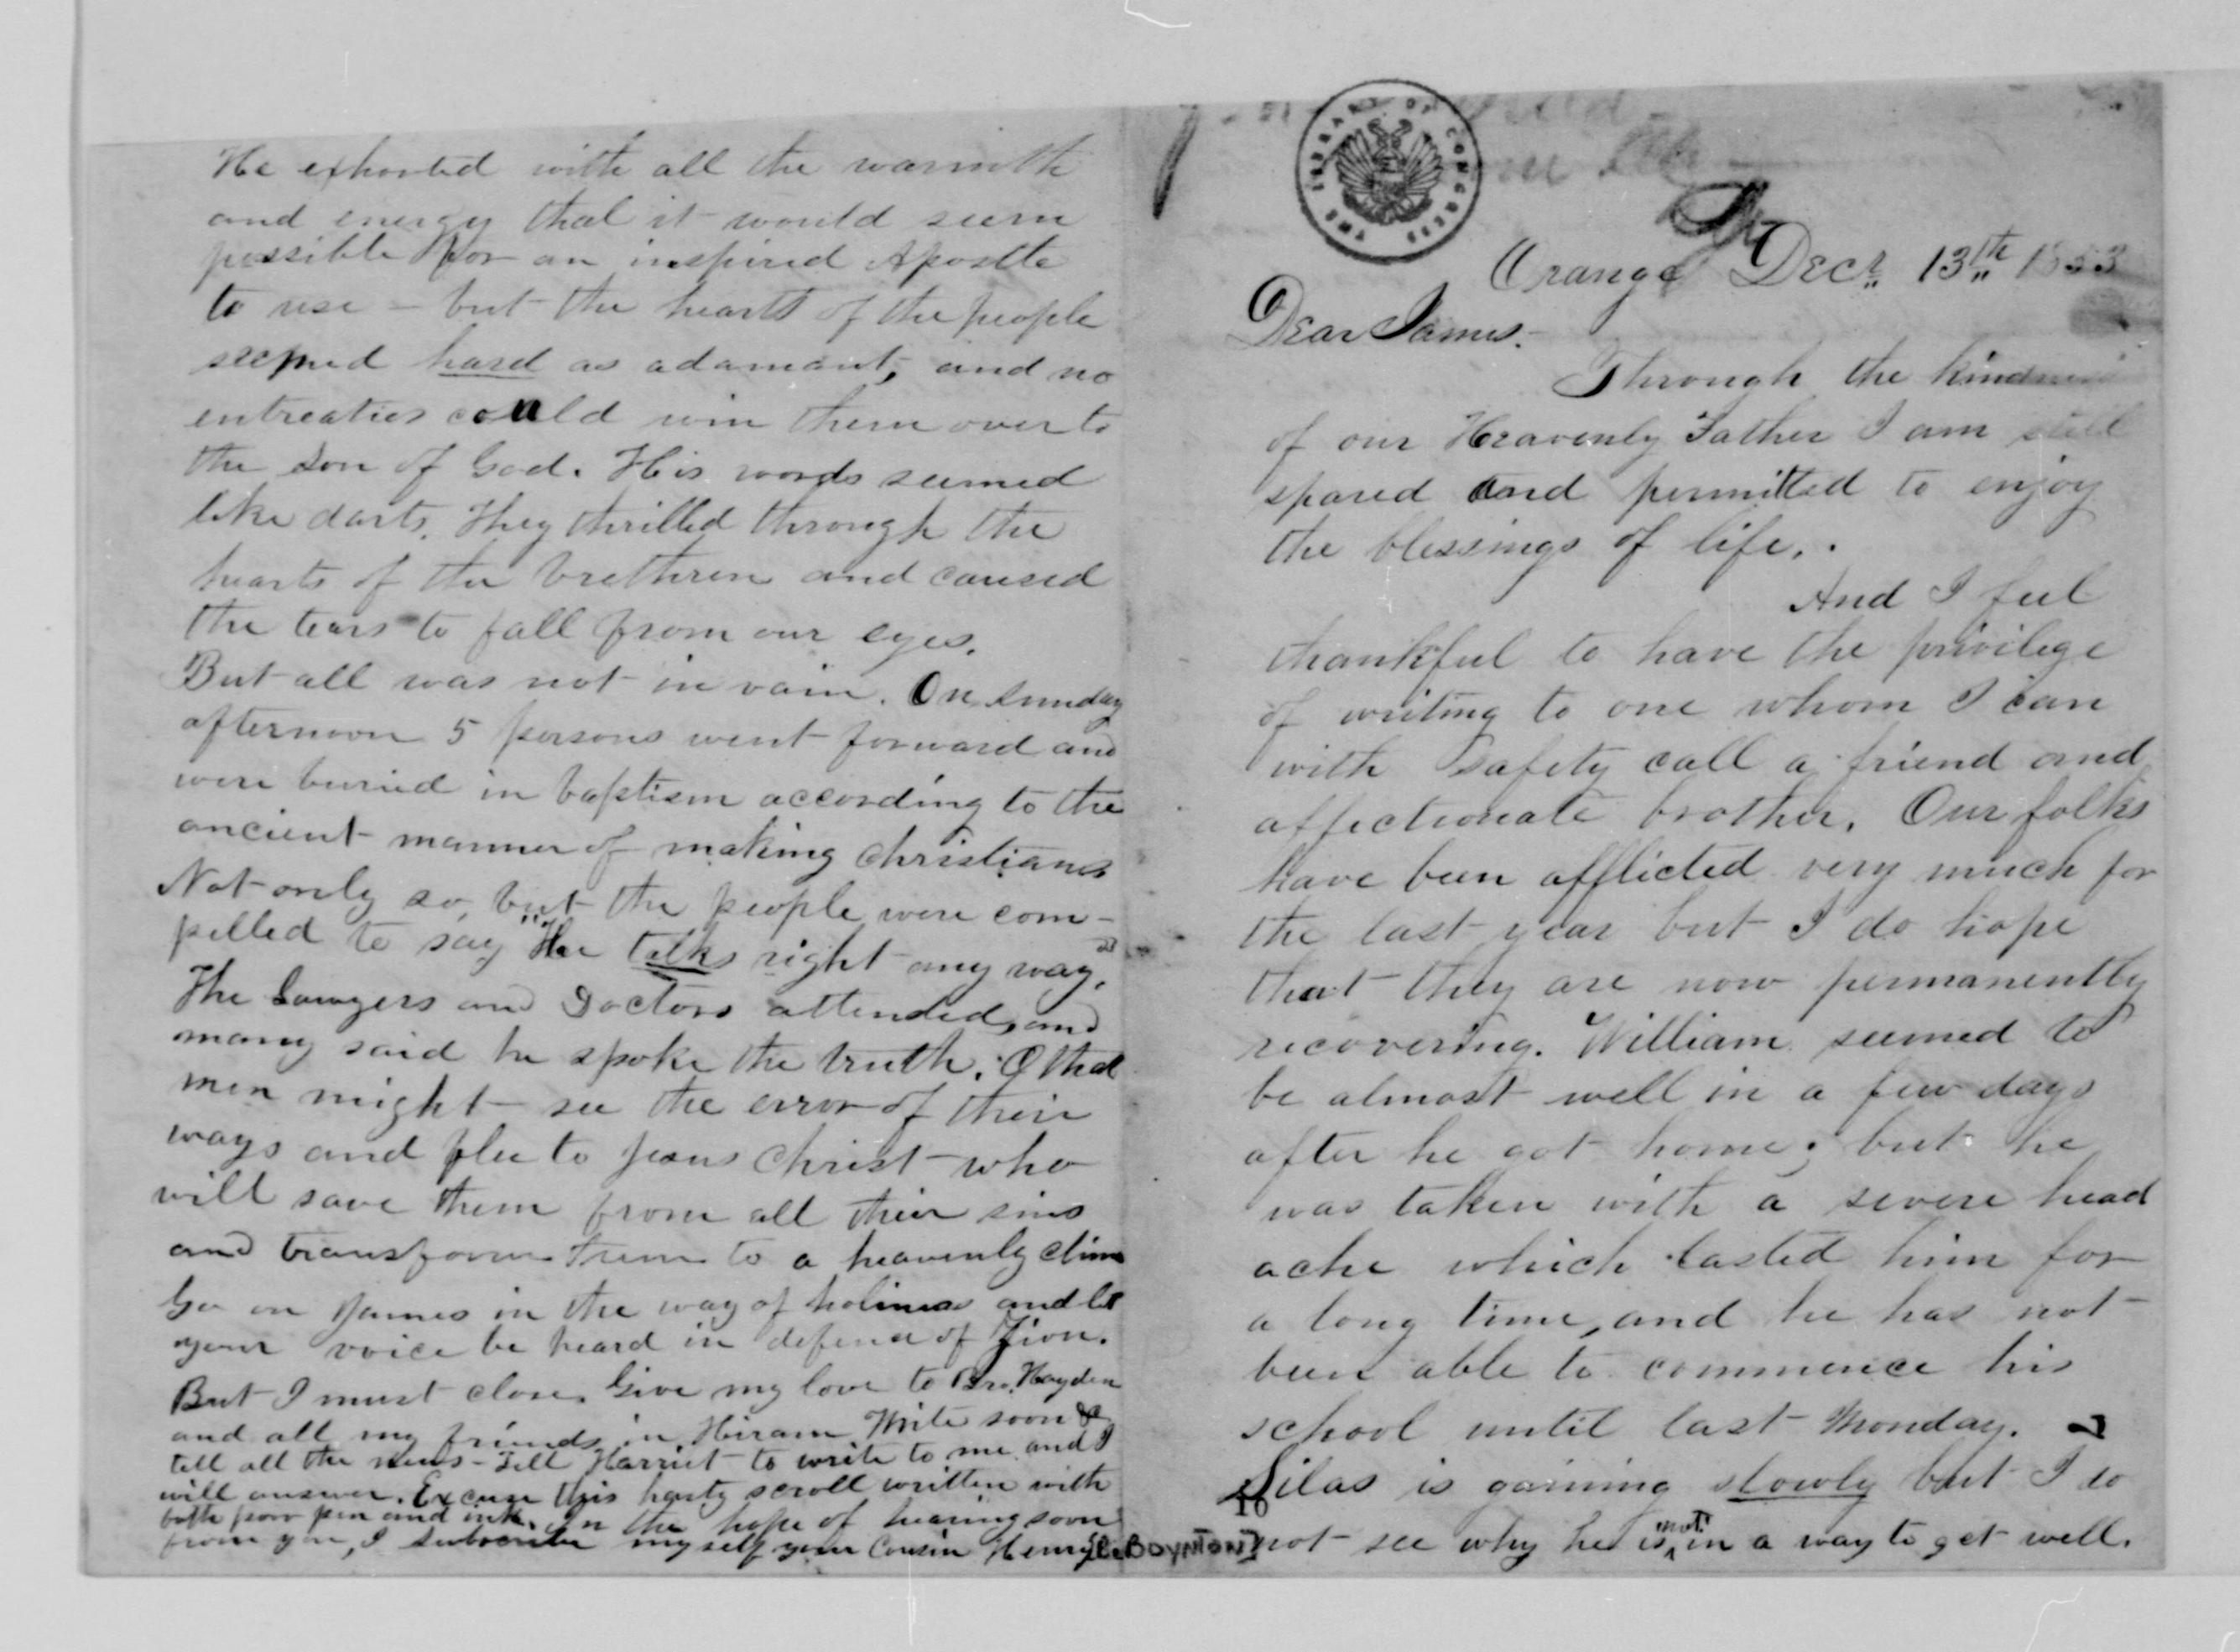 Orange Decr. 13th 1853
Dear James.
Through the kindness
of our Heavenly Father I am still
spared and permitted to enjoy
the blessings of life.
And I feel
thankful to have the privilege
of writing to one whom I can
with safety call a friend and
affectionate brother. Our folks
have been afflicted very much for
the last year but I do hope
that they are now permanently
recovering. William seemed to
be almost well in a few days
after he got home; but he
was taken with a severe head
ache which lasted him for
a long time, and he has not
been able to commence his
school until last Monday.
Silas is gaining slowly but I do
not see why he is not in a way to get well.
10
He exhorted with all the warmth
and energy that it would seem
possible for an inspired Apostle
to use – but the hearts of the people
seemed hard as adamant, and no
entreaties could win them over to
the Son of God. His words seemed
like darts. They thrilled through the
hearts of the brethren and caused
the tears to fall from our eyes.
But all was not in vain. On Sunday
afternoon 5 persons went forward and
were buried in baptism according to the
ancient manner of making christians
Not only so, but the people were com-
pelled to say "He talks right any way."
The Lawyers and Doctors attended, and
many said he spoke the truth. O that
men might see the error of their
ways and flee to Jesus Christ who
will save them from all their sins
and transform them to a heavenly clime
Go on James in the way of holiness and let
your voice be heard in defence of Zion.
But I must close. Give my love to Bro. Hayden
and all my friends in Hiram Write soon &
tell all the news – Tell Harriet to write to me and I
will answer. Excuse this hasty scroll written with
both poor pen and ink. In the hope of hearing soon
from you, I subscribe myself your Cousin Henry [B. BOYNTON]
THE LIBRARY OF CONGRESS